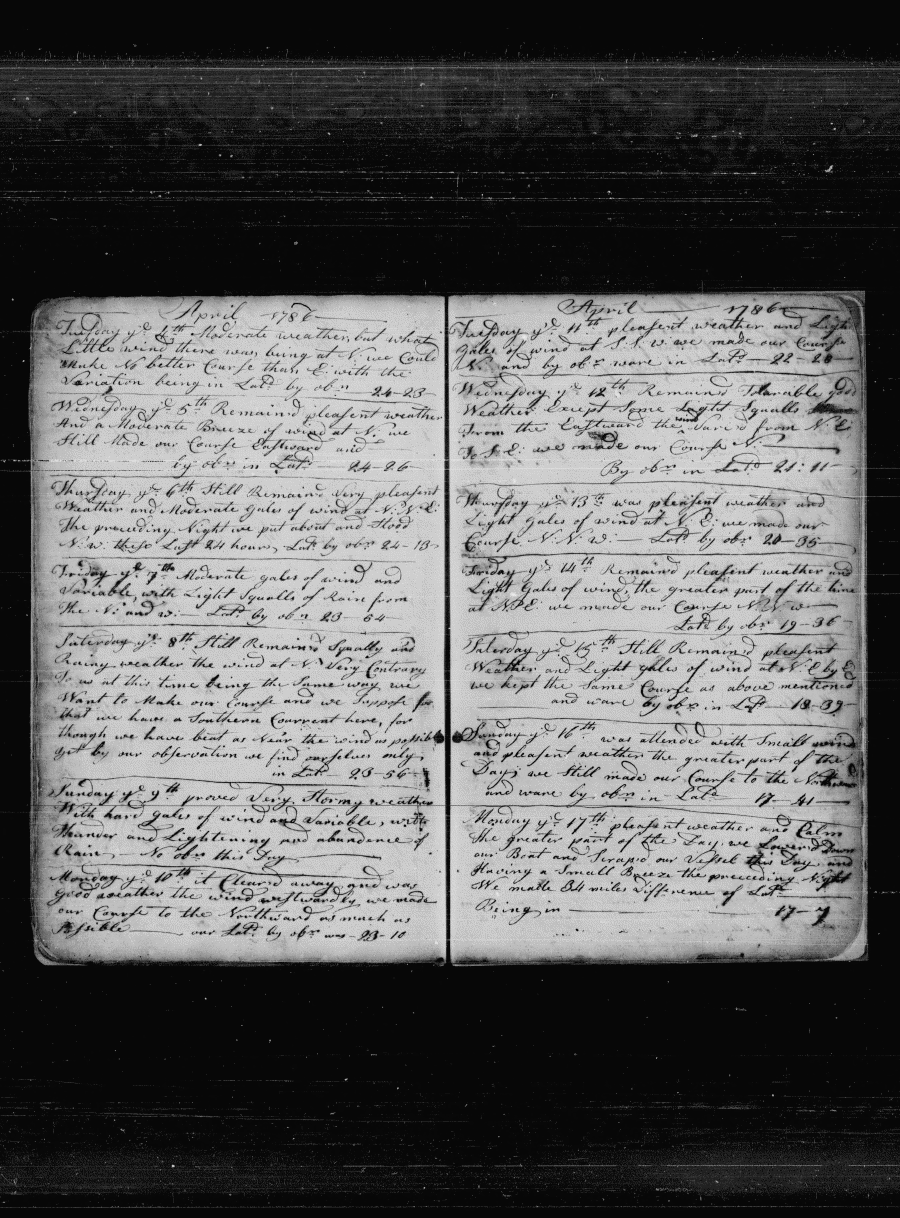 April 1786
Tuesday ye 4th Moderate weather, but what
Little wind there was, being at N: we Could
Make No better Course than E: with the
Variation being in Latd by obsn 24-23
Wednesday ye 5th Remain'd pleasent weather
And a Moderate Breeze of wind at N. we
Still Made our Course Eastward and
by obsn in Latd 24-26
Thursday ye 6th Still Remain'd Very pleasent
Weather and Moderate Gales of wind at N. N. E:
The preceeding Night we put about and Stood
N: w: these Last 24 hours, Latd by obsn 24-13
Friday ye 7th Moderate gales of wind and
Variable, with Light Squalls of Rain from
The N: and w: Latd by obsn 23-54
Saturday ye 8th Still Remain'd Squally and
Rainy weather the wind at N. Very Contrary
To us at this time being the Same way we
Want to Make our Course and we Suppose
that we have a Southern Courrent here, for
though we have beat as Near the wind as possible
yet by our observation we find ourselves only
in Latd 23-56
Sunday ye 9th proved Very Stormy weather
With hard Gales of wind and Variable, with
Thunder and Lightening and abundence of
Rain, No obsn this Day
Monday ye 10th it Clear'd away and was
good weather the wind westwardly, we made
our Course to the Northward as much as
possible our Latd by obsn was 23-10
April 1786
Tuesday ye 11th pleasent weather and Light
Gales of wind at S.S.W we made our Course
N: and by obsn ware in Latd 22-20
Wednesday ye 12th Remain'd Tolarable good
Weather Except Some Light Squalls
From the Eastward the wind Varie'd from N. E
To S. E: we made our Course N.
By obsn in Latd 21:11
Thursday ye 13th was pleasent weather and
Light Gales of wind at N. E: we made our
Course N. N. w: Latd by obsn 20-35
Friday ye 14th Remain'd pleasent weather and
Light Gales of wind, the greater part of the time
at N E: we made our Course N. N w
Latd by obsn 19-36
Saterday ye 15th Still Remain'd pleasent
Weather and Light Gales of wind at N. E by E
we kept the Same Course as above mentioned
and ware by obsn in Latd 18-39
Sunday ye 16th was attended with Small wind
and pleasent weather the greater part of the
Day; we Still made our Course to the
and ware by obsn in Latd 17-41
Monday ye 17th pleasent weather and Calm
the greater part of the Day, we Lower'd Down
our Boat and Scrap'd our Vessel this Day and
Having a Small Breeze the preceeding Night
We made 34 miles Difference of Latd
Being in 17-7